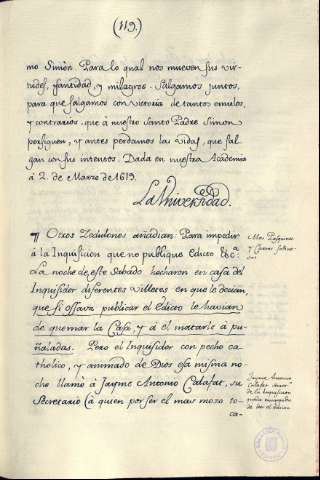 (119.)
mo Simòn. Para lo qual nos mueven sus vir-
tudes, santidad, y milagros. Salgamos juntos,
para que salgamos con victoria de tantos emulos,
y contrarios, que à nuestro Santo Padre Simon
persiguen, y antes perdamos las vidas, que sal-
gan con sus intentos. Dada en nuestra Academia
à 2. de Marzo de 1619.
La Universidad.
¶ Otros Zedulones añadian: Para impedir
à la Inquisicion que no publique Edicto Etc.ª
La noche de este Sabado hecharon en casa del
Inquisidor diferentes villetes en que le decian,
que si ossava publicar el Edicto le havian
de quemar la Casa, y à el matarle à pu-
ñaladas. Pero el Inquisidor con pecho ca-
tholico, y animado de Dios esa misma no-
che llamó à Jayme Antonio Calafat, su
Secretario (à quien por ser el mas mozo to-
ca-
Mas Pasquines
y Cartas
Jayme Antonio
Calafat
de la Inquisicion
de leer el Edicto